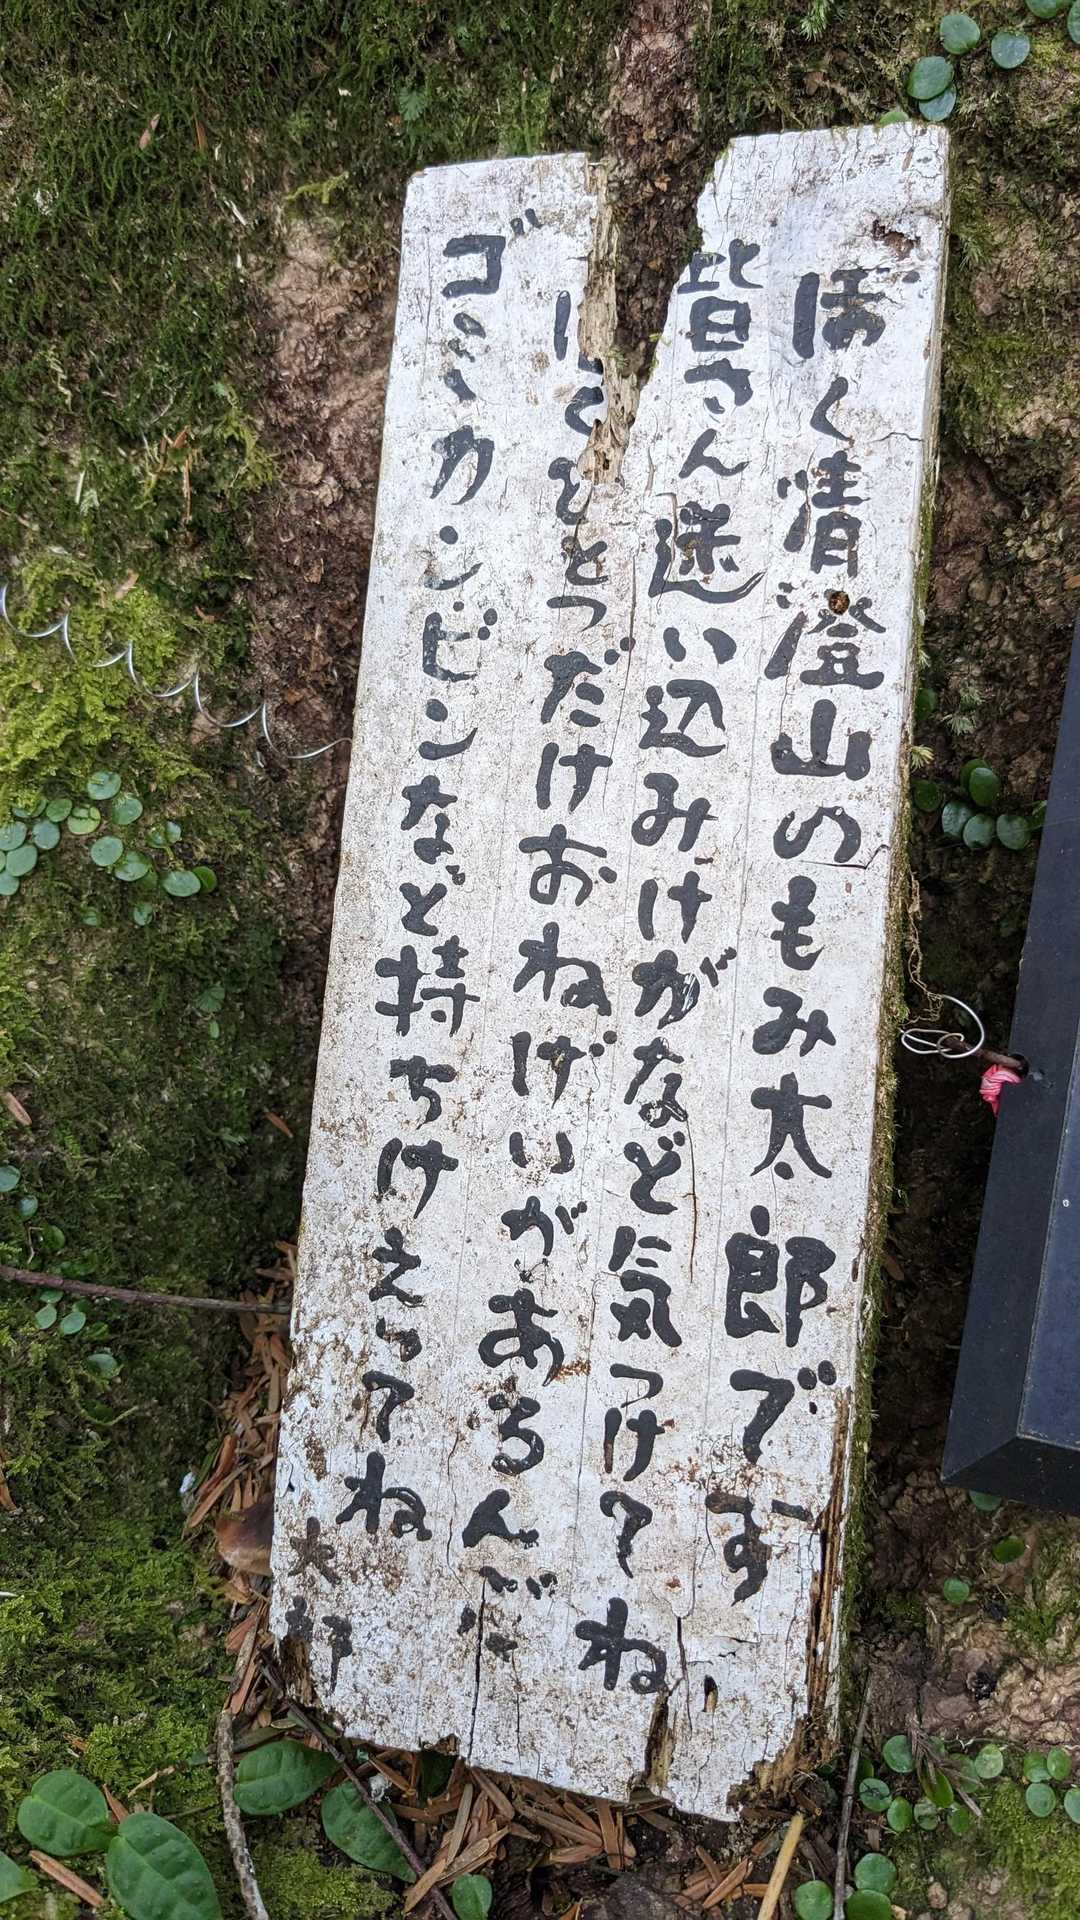 ぼく清澄山のもみ太郎です
皆さん迷い込みけがなど気つけてね
ぼくもとつだけおねげいがあるんだ
ゴミカンビンなど持ちけえってね
太郎